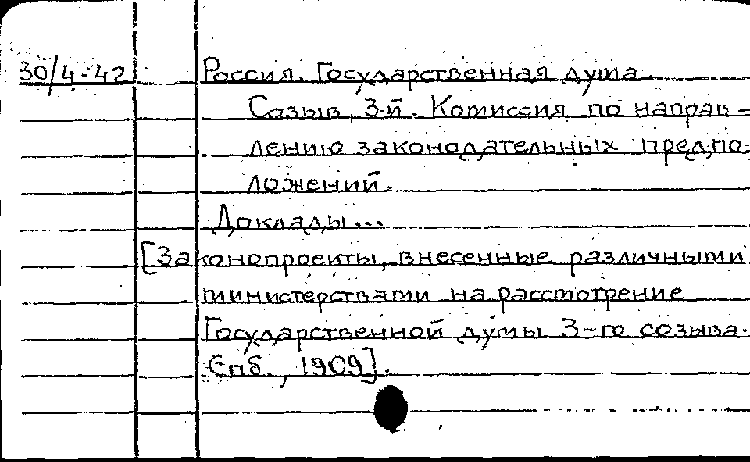 30/4-42 Россия. Государственная дума.
Созыв, 3-й. Комиссия по направ-
лению законодательных предпо-
ложений.
Доклады...
[Законопроекты, внесенные различными
министерствами на рассмотрение
Государственной думы 3-го созыва.
Спб., 1909].